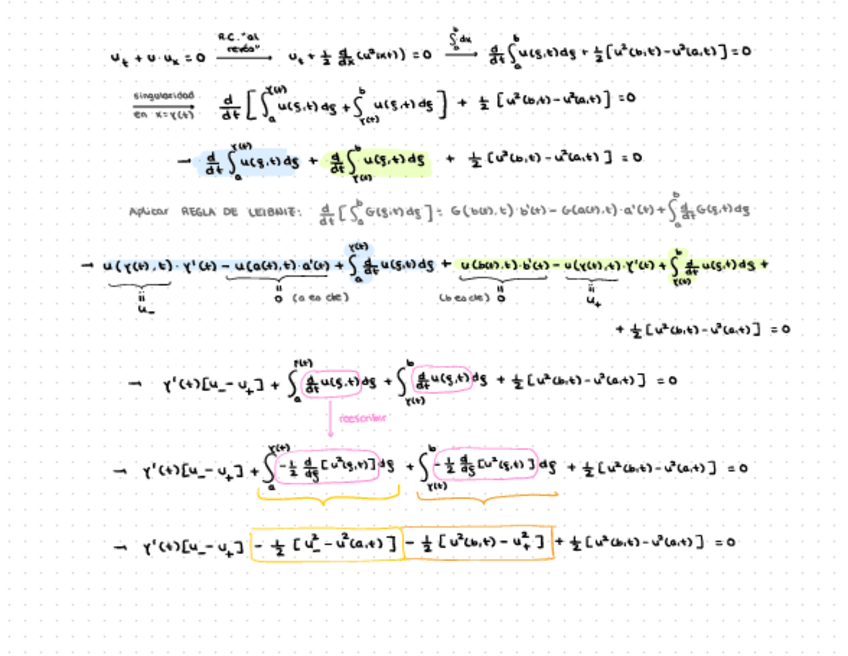 u_t + u·u_x = 0 —R.C. "al revés"→ u_t + ½ d/dx (u²(x,t)) = 0 —∫_a^b dx→ d/dt ∫_a^b u(ξ,t)dξ + ½[u²(b,t)-u²(a,t)] = 0
—singularidad en x=γ(t)→ d/dt [∫_a^γ(t) u(ξ,t)dξ + ∫_γ(t)^b u(ξ,t)dξ] + ½ [u²(b,t)-u²(a,t)] = 0
→ d/dt ∫_a^γ(t) u(ξ,t)dξ + d/dt ∫_γ(t)^b u(ξ,t)dξ + ½[u²(b,t)-u²(a,t)] = 0
Aplicar REGLA DE LEIBNIZ: d/dt [∫_a^b G(ξ,t)dξ] = G(b(t),t)·b'(t) - G(a(t),t)·a'(t) + ∫_a^b d/dt G(ξ,t)dξ
→ u(γ(t),t)·γ'(t) - u(a(t),t)·a'(t) + ∫_a^γ(t) d/dt u(ξ,t)dξ + u(b(t),t)·b'(t) - u(γ(t),t)·γ'(t) + ∫_γ(t)^b d/dt u(ξ,t)dξ +
u_- 0 (a es cte) (b es cte) 0 u_+
+ ½[u²(b,t)-u²(a,t)] = 0
→ γ'(t)[u_- - u_+] + ∫_a^γ(t) d/dt u(ξ,t)dξ + ∫_γ(t)^b d/dt u(ξ,t)dξ + ½[u²(b,t)-u²(a,t)] = 0
reescribir
→ γ'(t)[u_- - u_+] + ∫_a^γ(t) -½ d/dξ [u²(ξ,t)]dξ + ∫_γ(t)^b -½ d/dξ [u²(ξ,t)]dξ + ½[u²(b,t)-u²(a,t)] = 0
→ γ'(t)[u_- - u_+] - ½ [u_-² - u²(a,t)] - ½ [u²(b,t) - u_+²] + ½[u²(b,t)-u²(a,t)] = 0